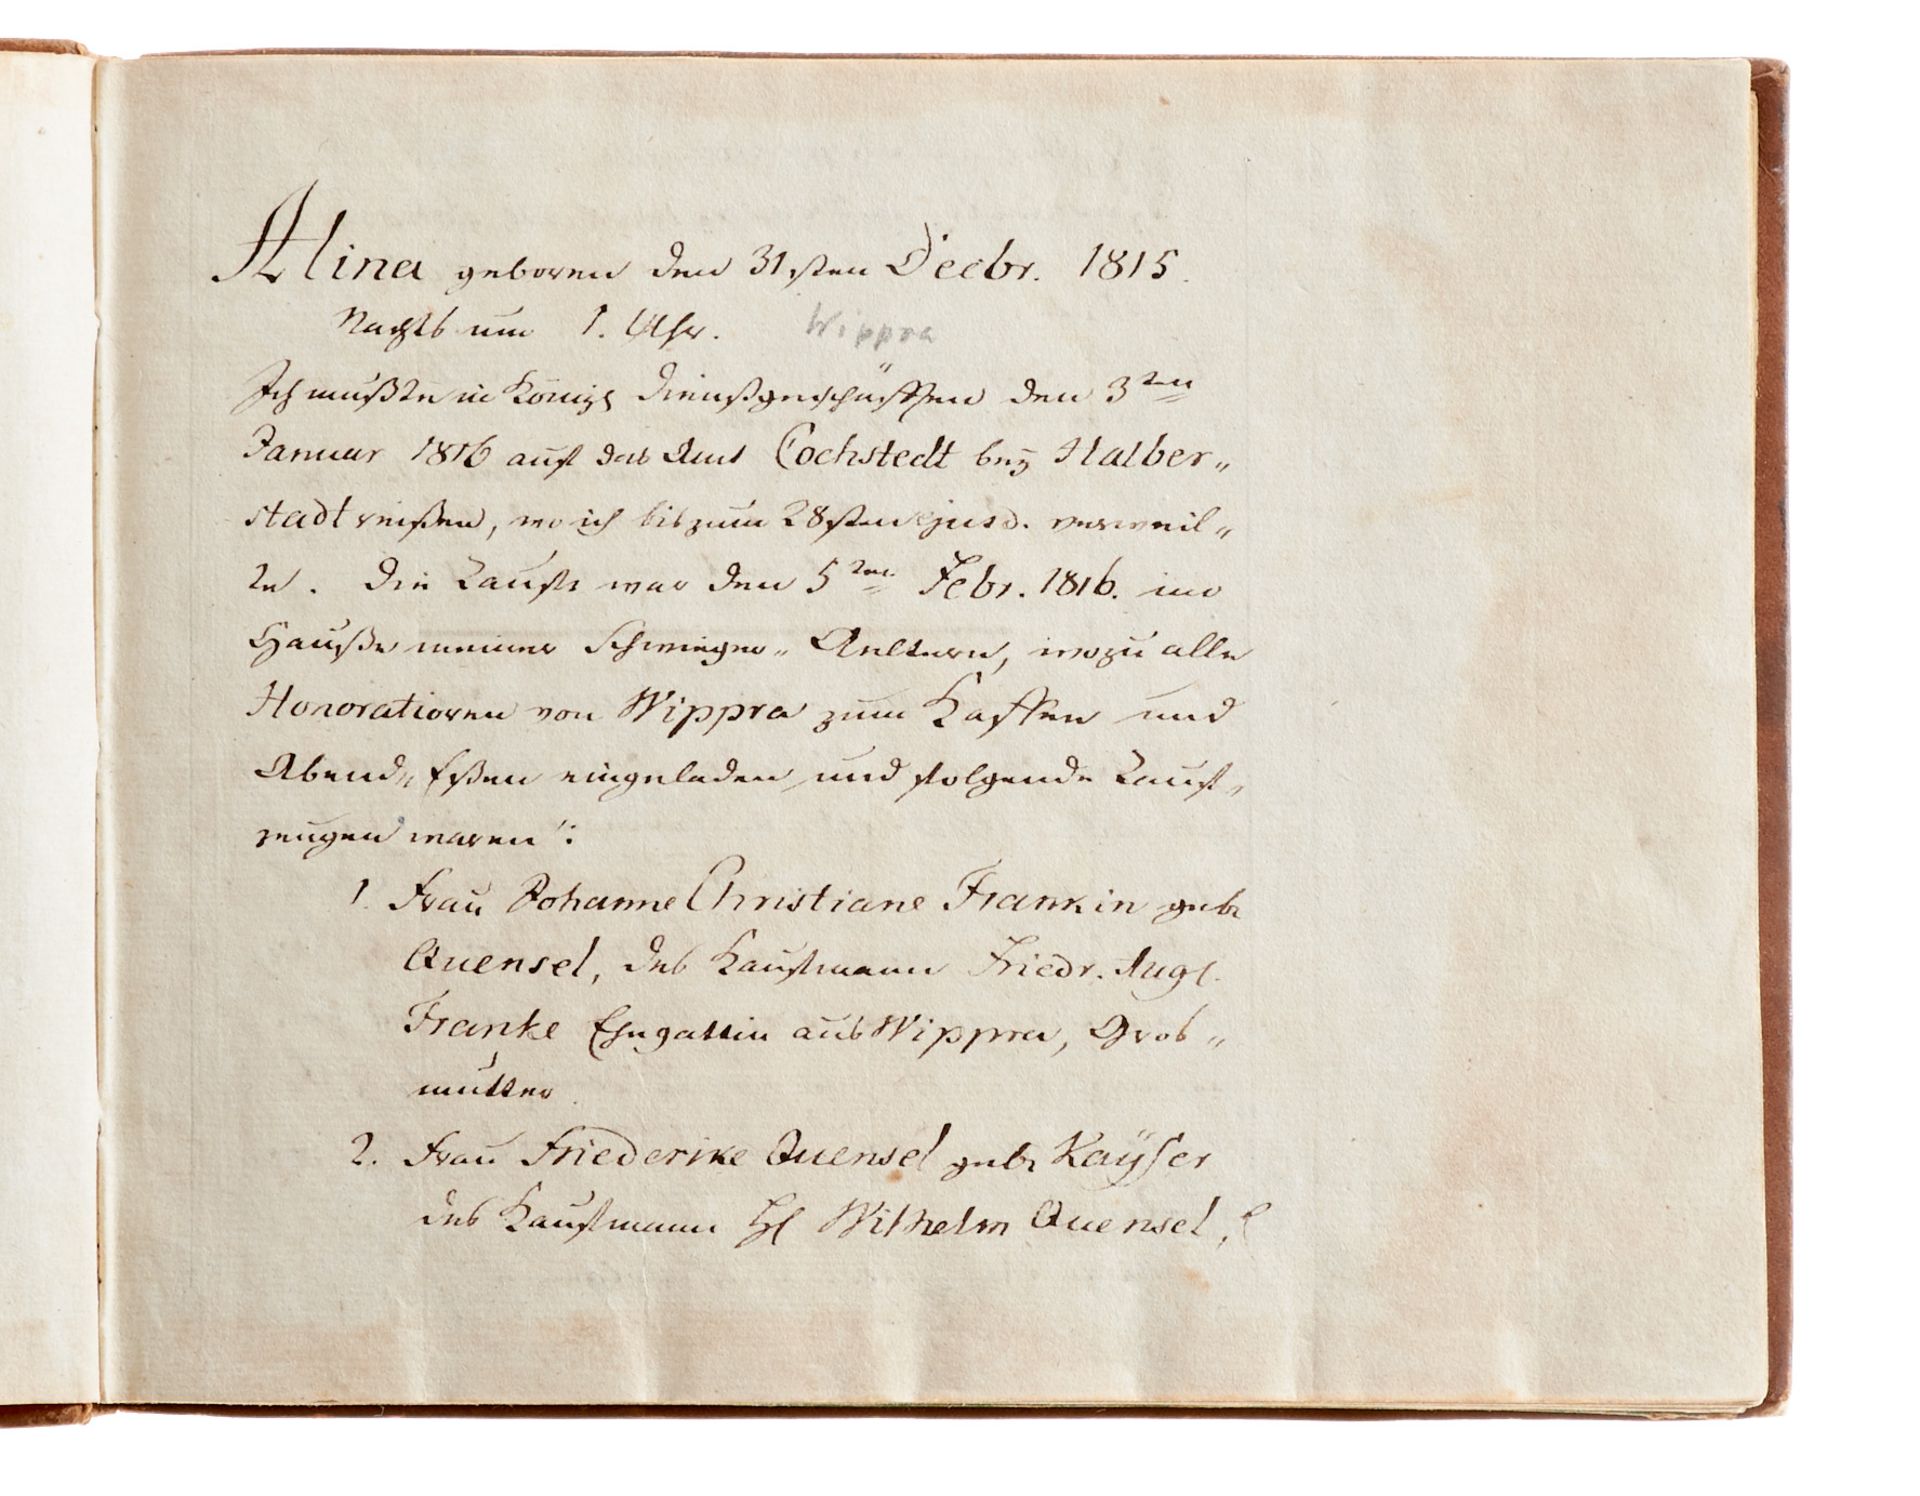 Alina geboren den 31sten Decbr. 1815.
Nachts um 1. Uhr. Wippra
Ich mußte in Königl Dienstgeschäfften den 3ten
Januar 1816 auf das Amt Cochstedt bey Halber„
stadt reißen, wo ich bis zum 28sten ejusd. verweil„
te. Die Taufe war den 5ten Febr. 1816. im
Hauße meiner Schwieger„Aeltern, wozu alle
Honoratioren von Wippra zum Kaffee und
Abend„Eßen eingeladen und folgende Tauf„
zeugen waren:
1. Frau Johanne Christiane Frankin geb.
Quensel, des Kaufmann Friedr. Augl.
Franke Ehegattin aus Wippra, Gros„
mutter.
2. Frau Friederike Quensel geb. Kayser
des Kaufmann H. Wilhelm Quensel,